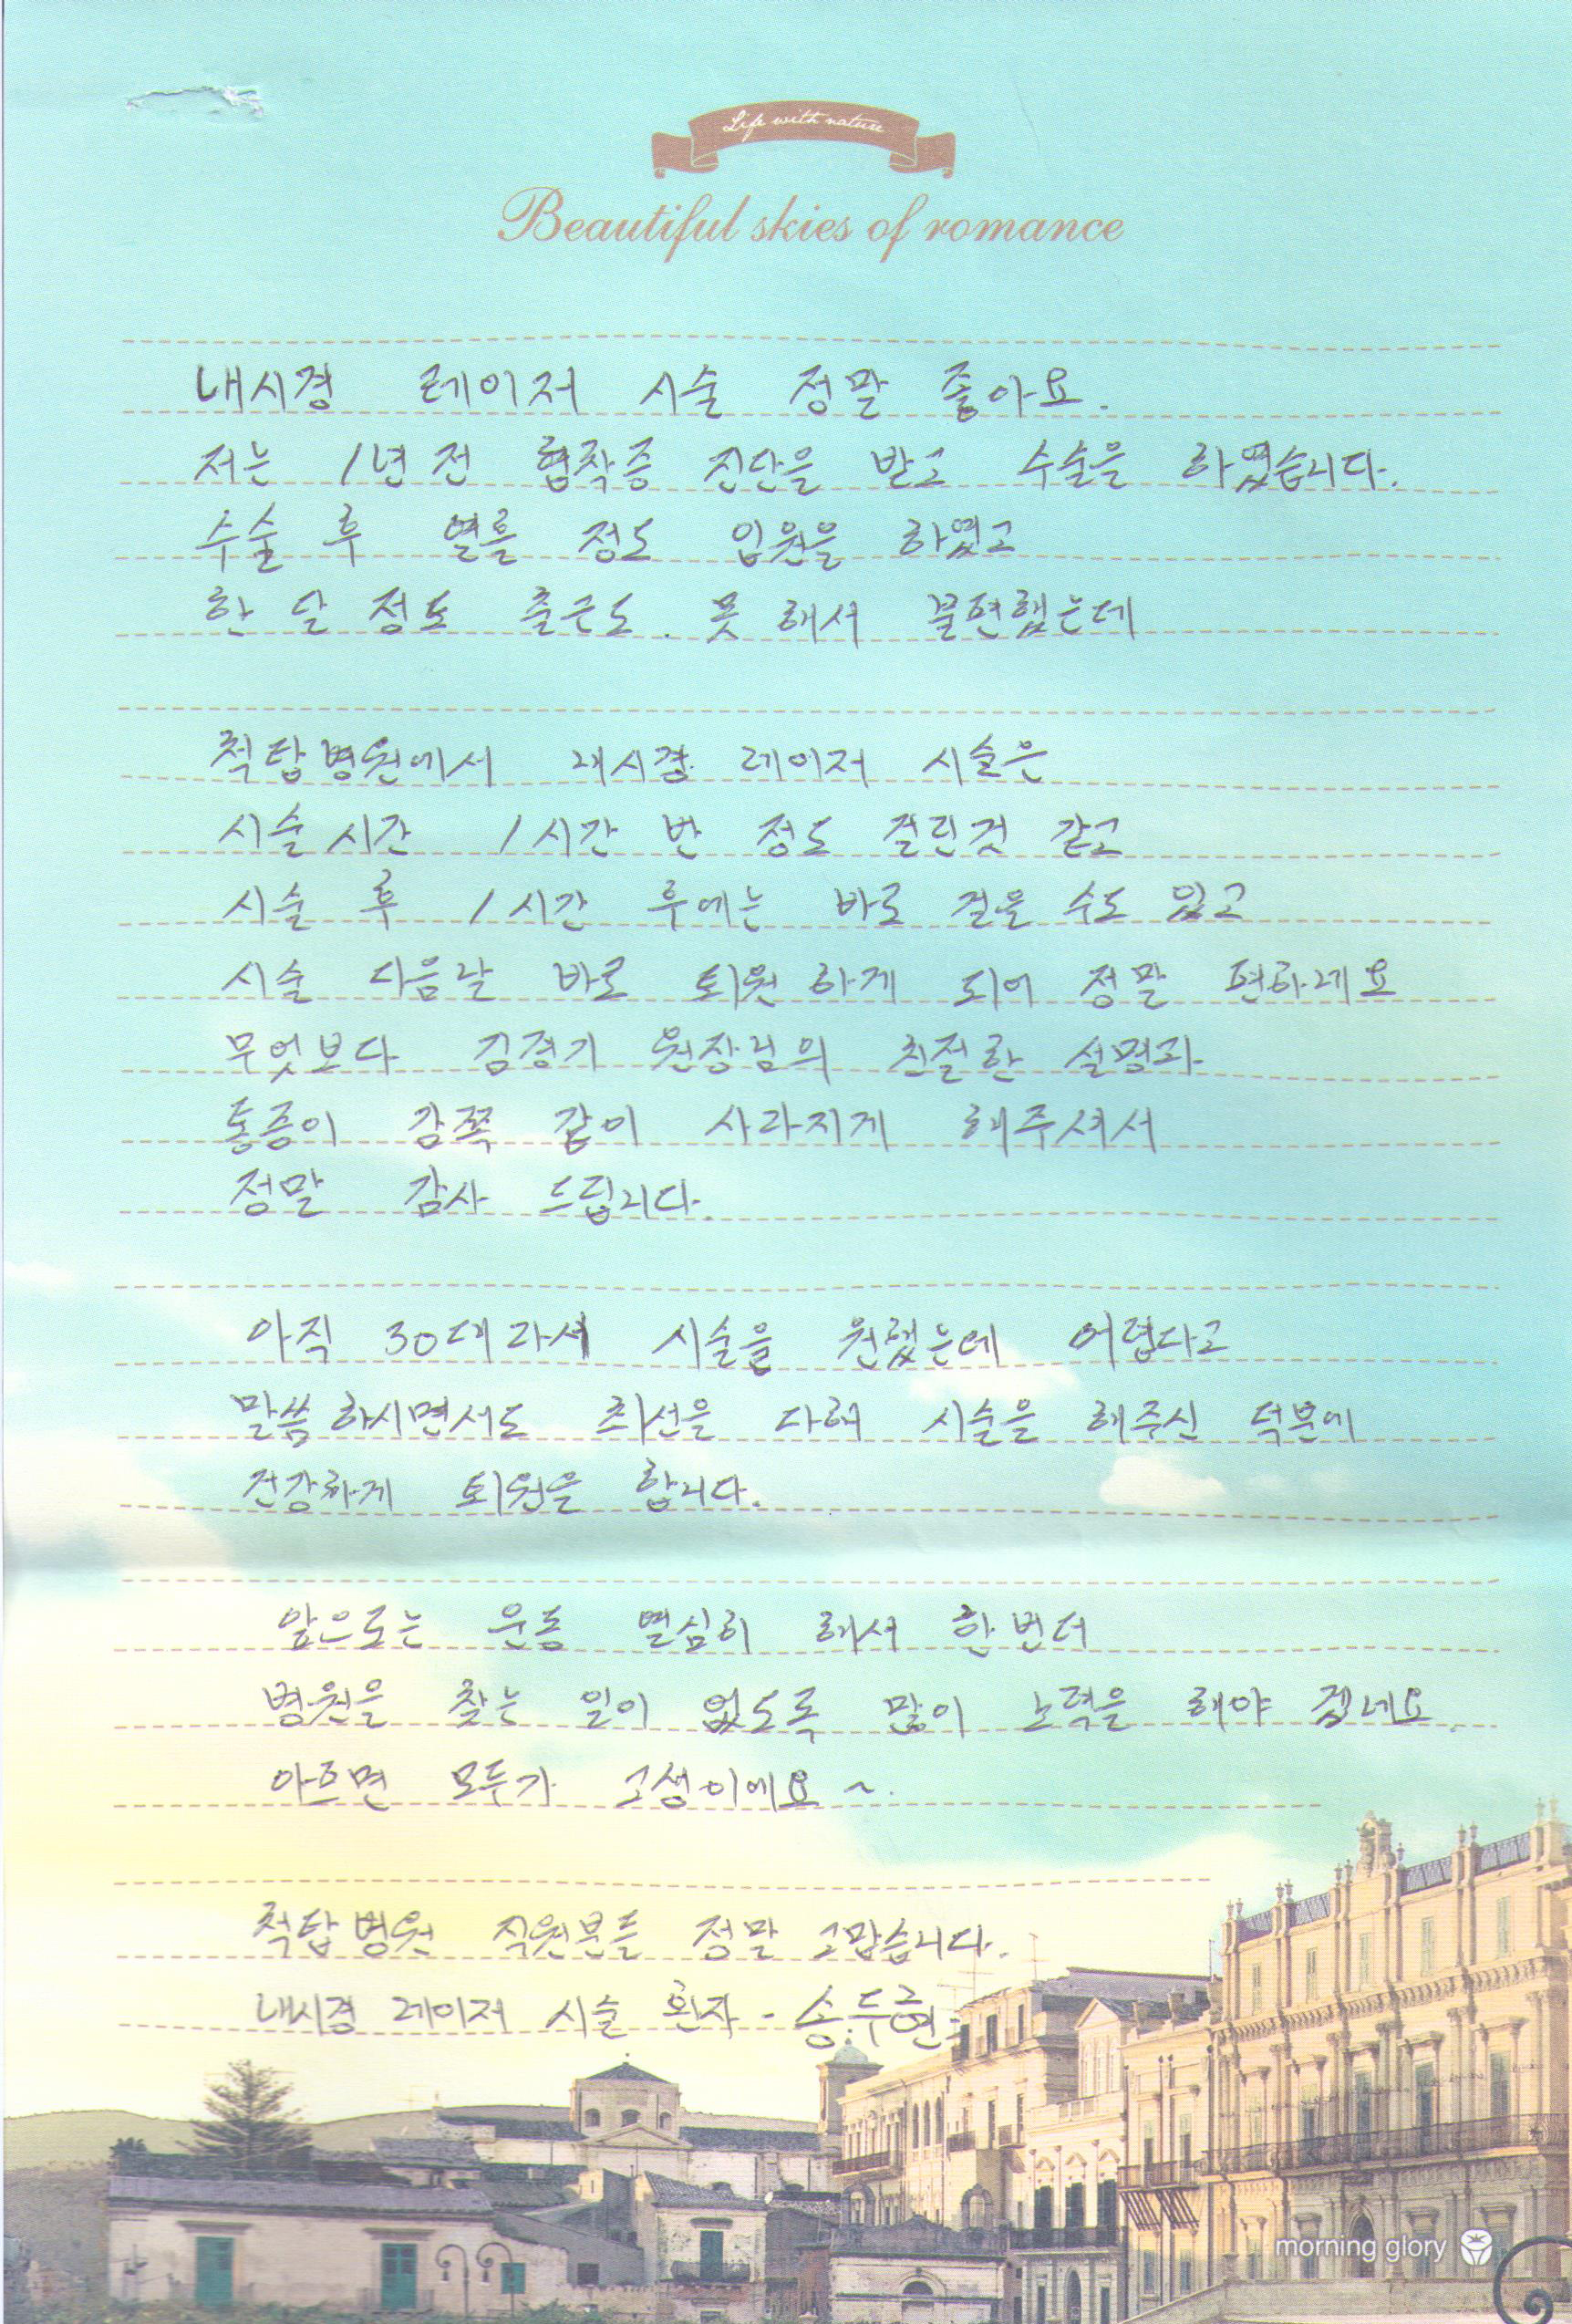 Life with nature
Beautiful skies of romance
내시경 레이저 시술 정말 좋아요.
저는 1년 전 협착증 진단을 받고 수술을 하였습니다.
수술 후 열흘 정도 입원을 하였고
한 달 정도 출근도. 못 해서 불편했는데
척탑병원에서 내시경 레이저 시술은
시술시간 1시간 반 정도 걸린것 같고
시술 후 1시간 후에는 바로 걸을 수도 있고
시술 다음날 바로 퇴원하게 되어 정말 편하네요
무엇보다 김경기 원장님의 친절한 설명과
통증이 감쪽 같이 사라지게 해주셔서
정말 감사 드립니다.
아직 30대라서 시술을 원했는데 어렵다고
말씀하시면서도 최선을 다해 시술을 해주신 덕분에
건강하게 퇴원을 합니다.
앞으로는 운동 열심히 해서 한번더
병원을 찾는 일이 없도록 많이 노력을 해야 겠네요.
아프면 모두가 고생이에요~.
척탑병원 직원분들 정말 고맙습니다.
내시경 레이저 시술 환자 - 송두현-
morning glory